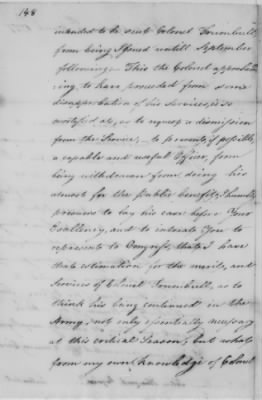 148
intended to be sent Colonel Trumbull,
from being signed untill September
following – This the Colonel apprehend
ing to have proceeded from some
disapprobation of his Services, is so
mortified at, as to request a dismission
from the Service, – to prevent, if possible,
a capable and useful Officer, from
being withdrawn from doing his
utmost for the public benefit, I humbly
presume to lay his case before Your
Excellency, and to entreate You to
represent to Congress, that I have
that estimation for the merits, and
Services of Colonel Trumbull, as to
think his being continued in the
Army, not only essentially necessary
at this critical Season, but what
from my own knowledge of Colonel